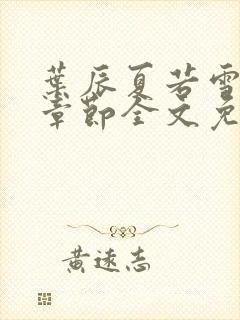 葉辰夏若雪
章節全文免
黃遠志